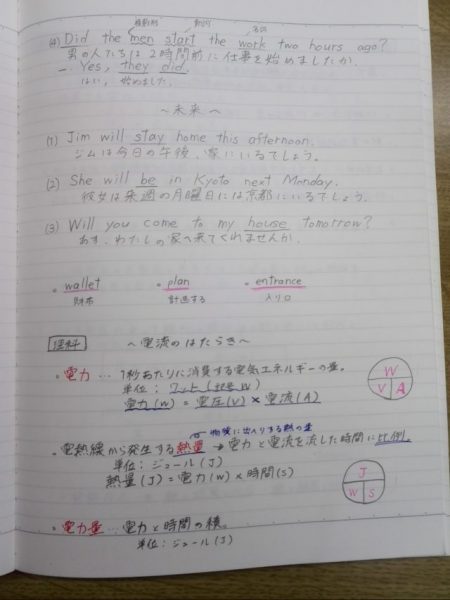 複数形 動詞 名詞
(4) Did the men start the work two hours ago?
男の人たちは2時間前に仕事を始めましたか。
— Yes, they did.
はい、始めました。
〜未来へ
(1) Jim will stay home this afternoon.
ジムは今日の午後、家にいるでしょう。
(2) She will be in Kyoto next Monday.
彼女は来週の月曜日には京都にいるでしょう。
(3) Will you come to my house tomorrow?
あす、わたしの家へ来てくれませんか。
• wallet • plan • entrance
財布 計画する 入り口
理科 〜電流のはたらき〜
• 電力 … 1秒あたりに消費する電気エネルギーの量。
単位: ワット(記号W)
電力(W) = 電圧(V) × 電流(A)
W
V A
物質に出入りする熱の量
• 電熱線から発生する熱量 → 電力と電流を流した時間に比例
単位: ジュール(J)
熱量(J) = 電力(W) × 時間(S)
J
W S
• 電力量 … 電力と時間の積。
単位: ジュール(J)